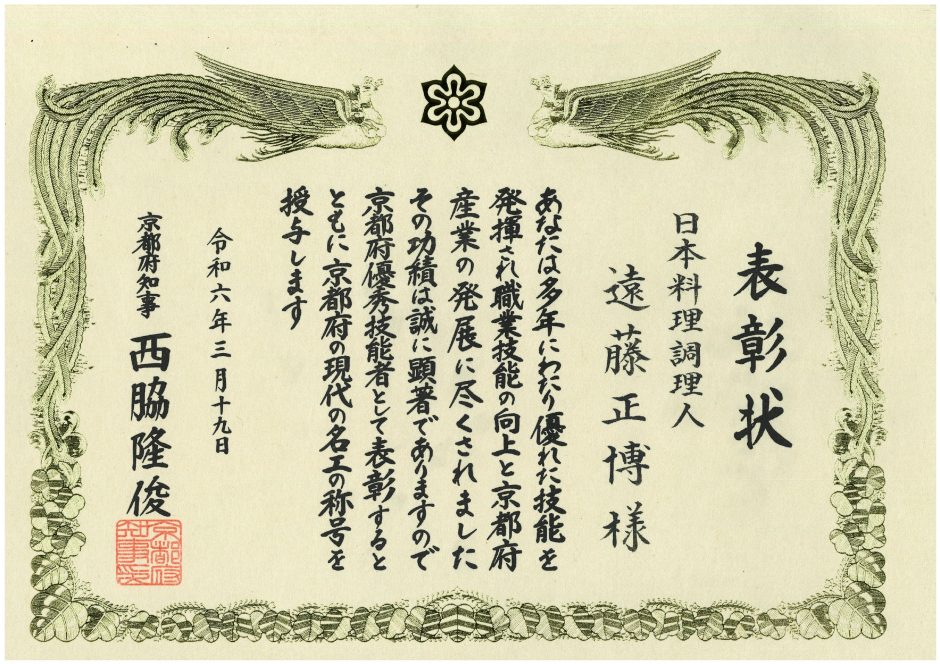 表彰状
日本料理調理人
遠藤正博様
あなたは多年にわたり優れた技能を
発揮され職業技能の向上と京都府
産業の発展に尽くされました
その功績は誠に顕著でありますので
京都府優秀技能者として表彰すると
ともに京都府の現代の名工の称号を
授与します
令和六年三月十九日
京都府知事 西脇隆俊
京都府知事印